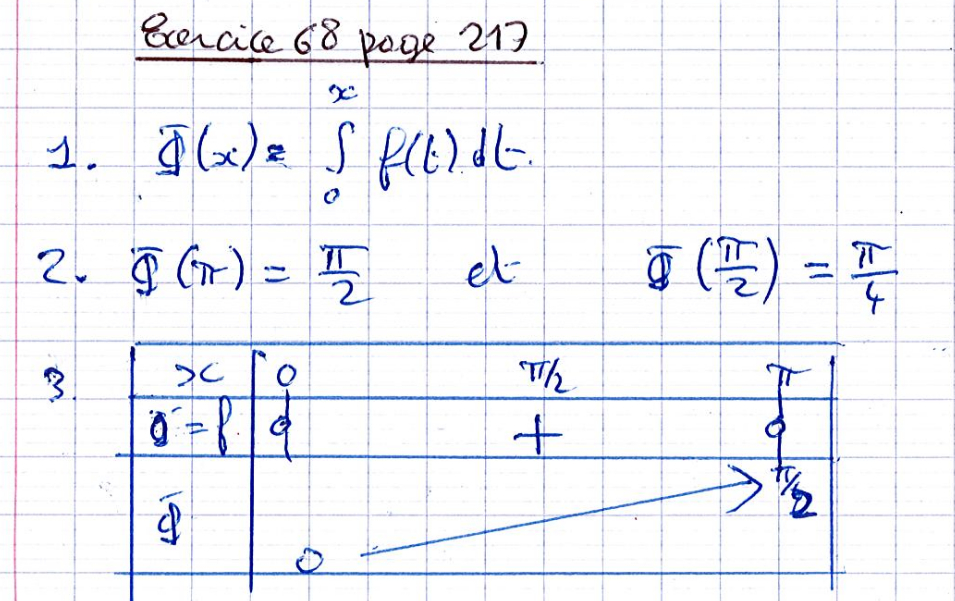 Exercice 68 page 217
1. Φ(x) = ∫₀ˣ f(t) dt.
2. Φ(π) = π/2 et Φ(π/2) = π/4
3.
x 0 π/2 π
Φ' = f 0 + 0
Φ 0 π/2